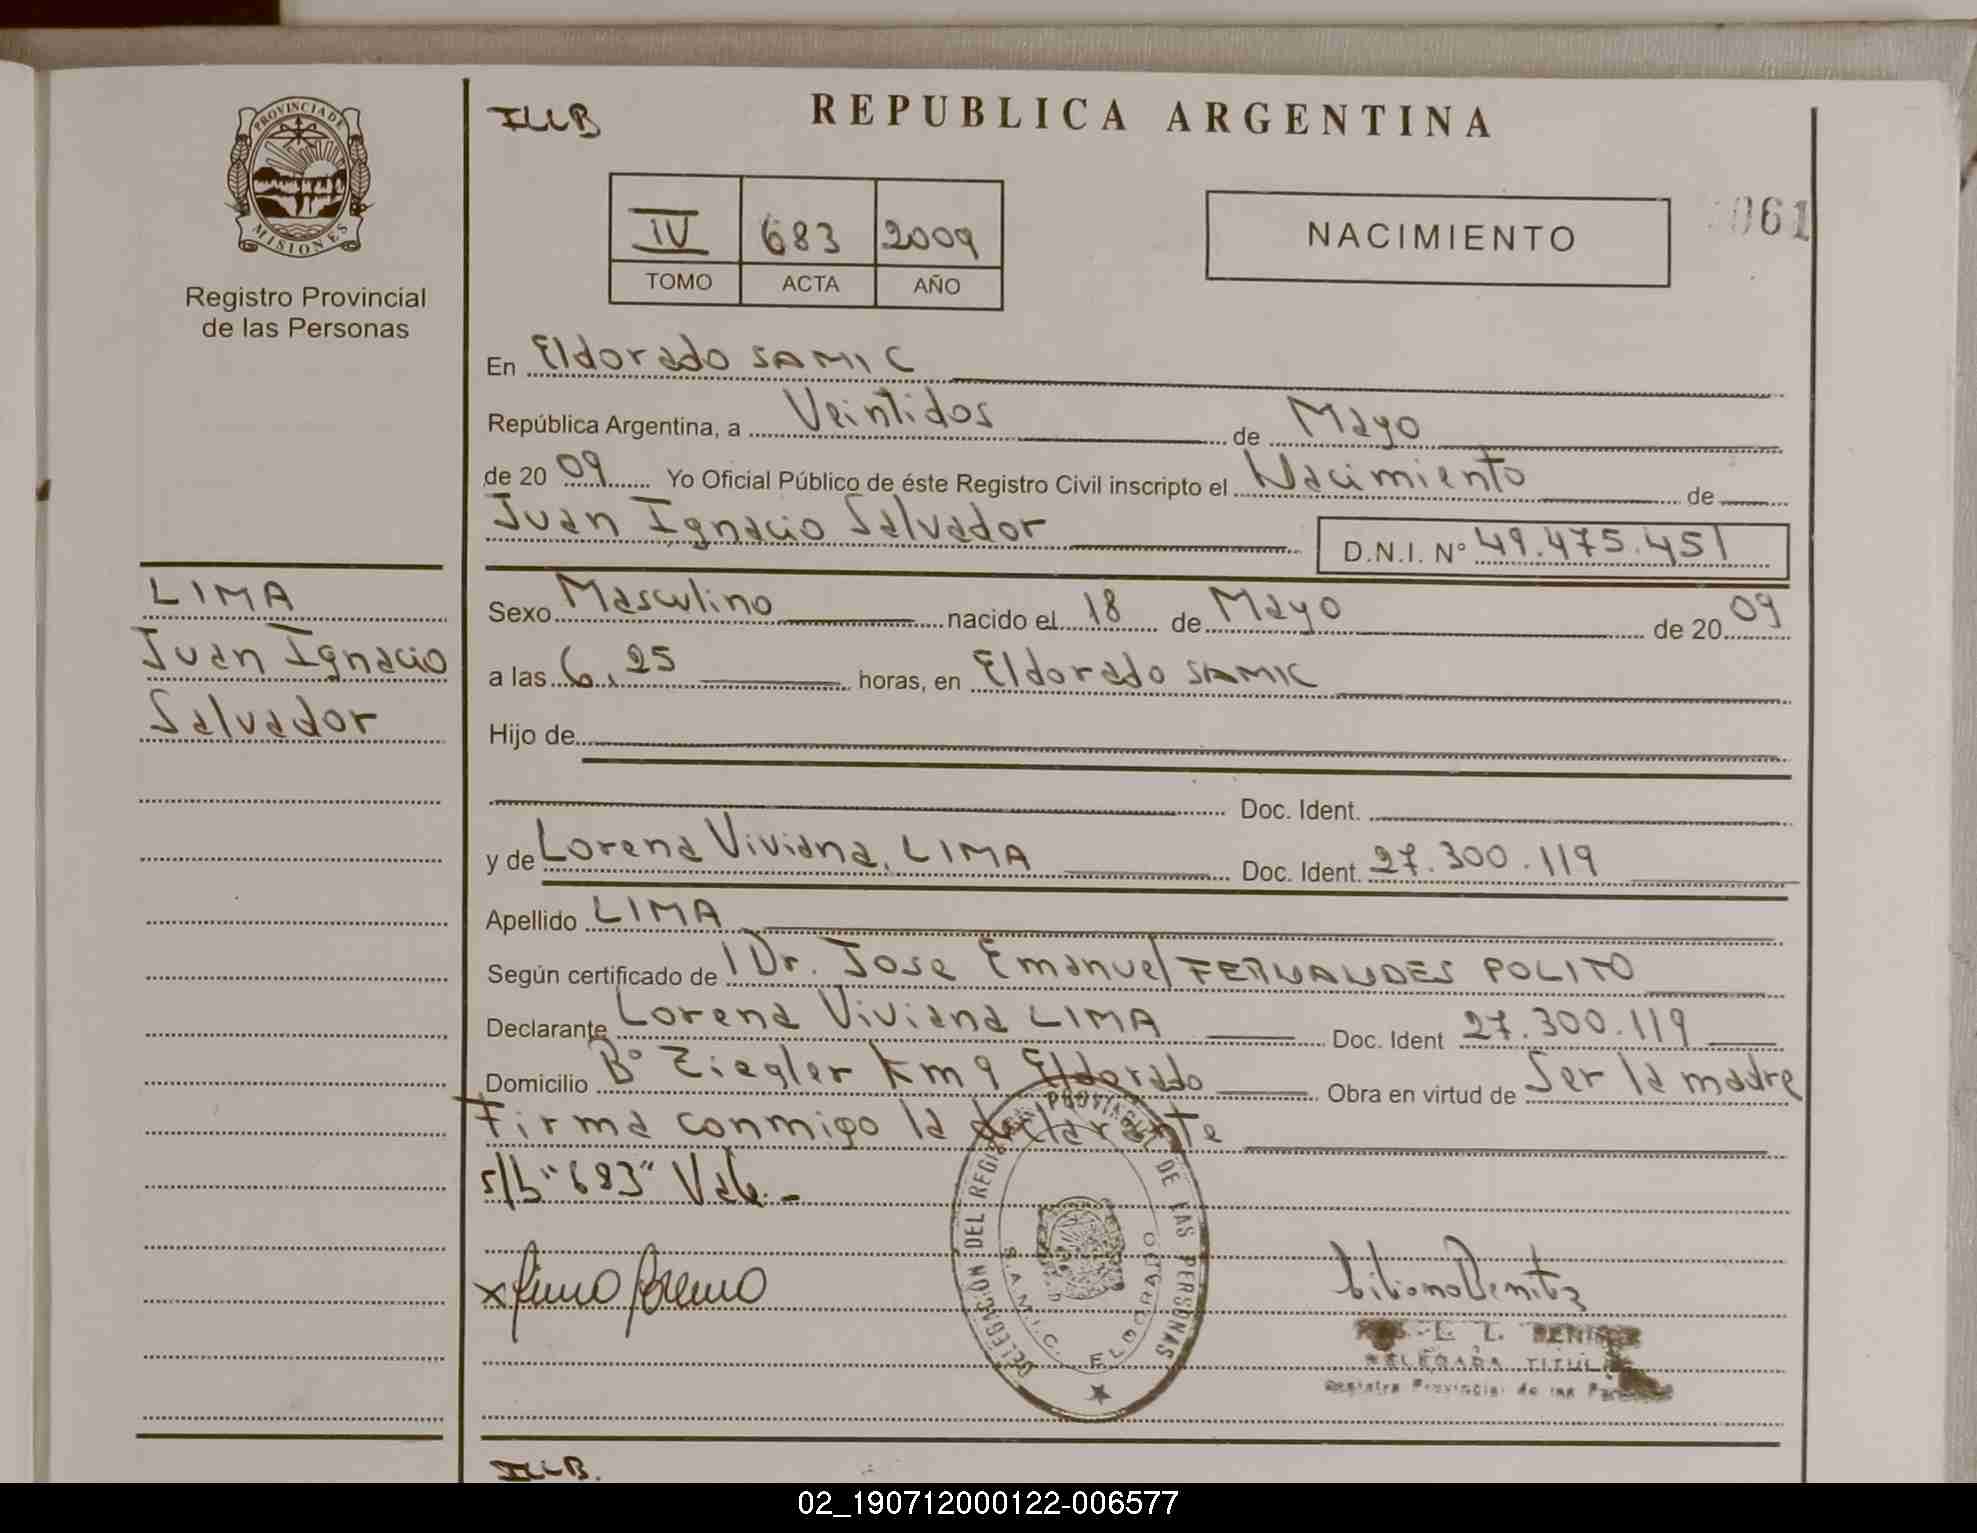 PROVINCIA DE
MISIONES
Registro Provincial
de las Personas
LIMA
Juan Ignacio
Salvador
ILLB
REPUBLICA ARGENTINA
IV 683 2009
TOMO ACTA AÑO
NACIMIENTO
061
En Eldorado SAMIC
República Argentina, a Veintidos de Mayo
de 20 09 Yo Oficial Público de éste Registro Civil inscripto el Nacimiento de
Juan Ignacio Salvador D.N.I. Nº 49.475.451
Sexo Masculino nacido el 18 de Mayo de 20 09
a las 6,25 horas, en Eldorado SAMIC
Hijo de
Doc. Ident.
y de Lorena Viviana, LIMA Doc. Ident. 27.300.119
Apellido LIMA
Según certificado de Dr. Jose Emanuel FERNANDES POLITO
Declarante Lorena Viviana LIMA Doc. Ident 27.300.119
Domicilio Bº Ziegler Km 9 Eldorado Obra en virtud de Ser la madre
Firma conmigo la declarante
s/b "683" Vale.-
DELEGACIÓN DEL REGISTRO PROVINCIAL DE LAS PERSONAS
S.A.M.I.C. ELDORADO
x Lima Lorena
Liliana Benitez
L. BENITEZ
DELEGADA TITULAR
Registro Provincial de las Personas
ILLB.
02_190712000122-006577